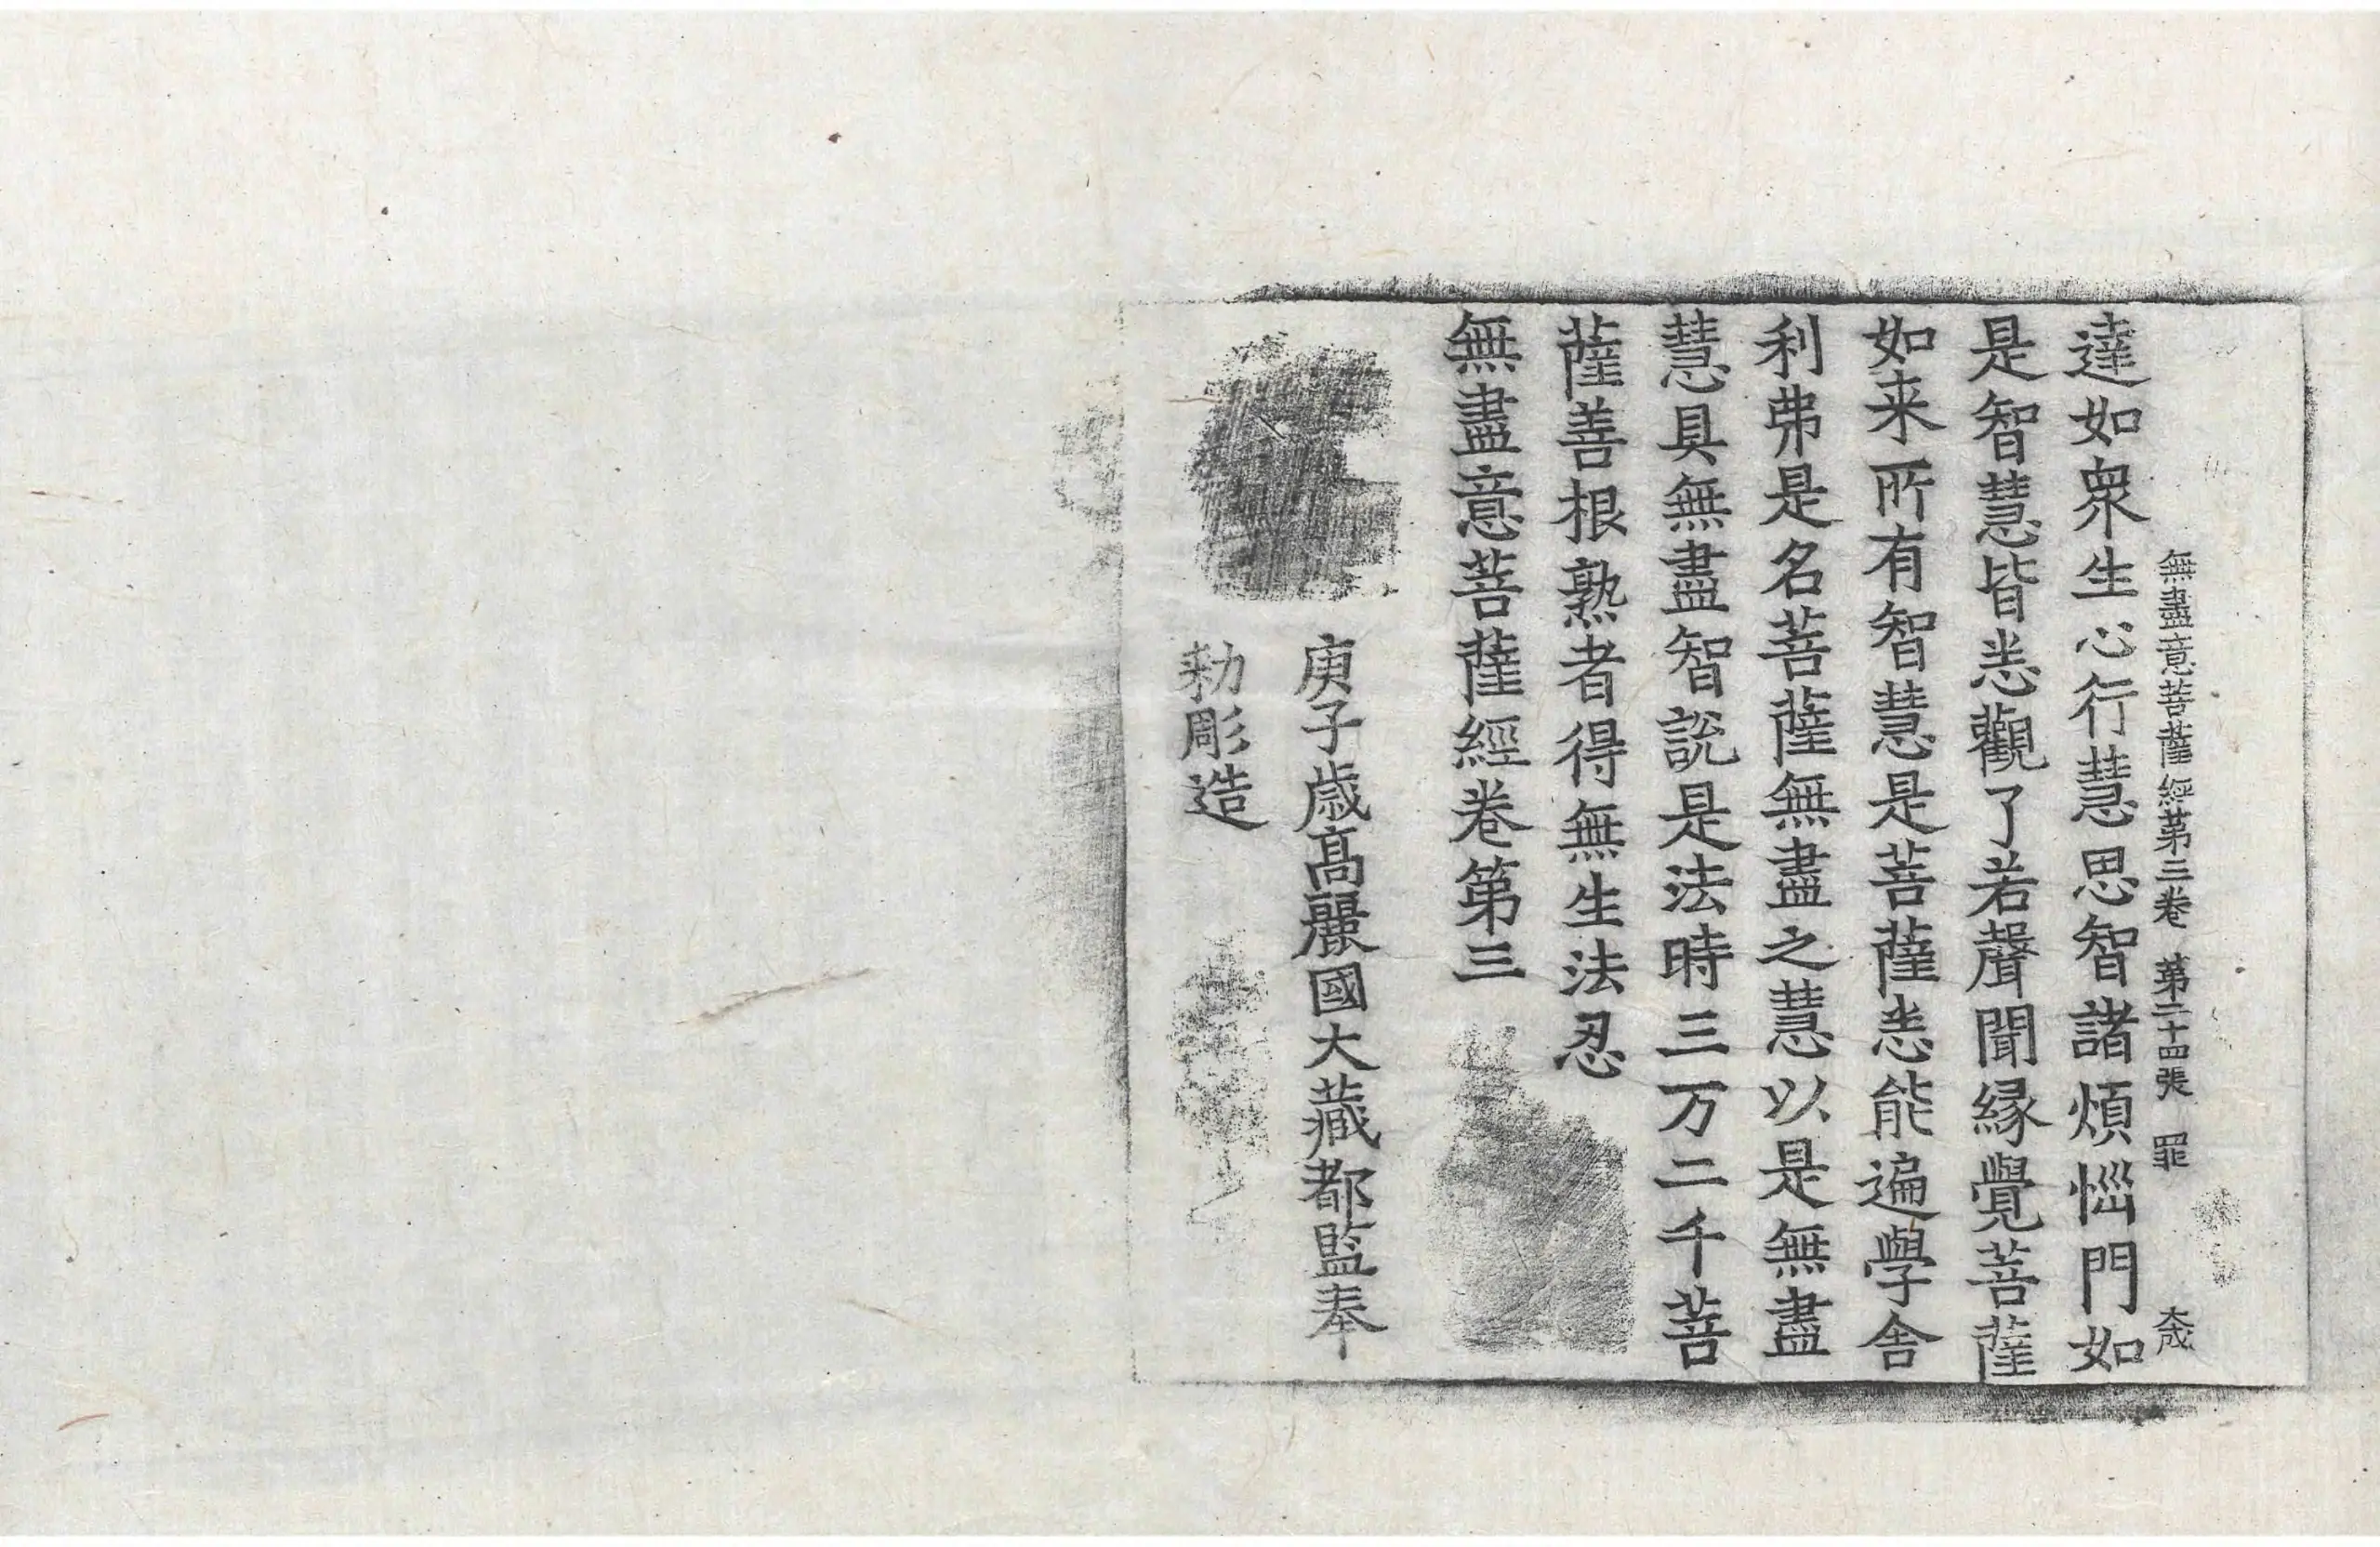 無盡意菩薩經第三卷 第二十四張 罪 大成
達如衆生心行慧思智諸煩惱門如
是智慧皆悉觀了若聲聞緣覺菩薩
如来所有智慧是菩薩悉能遍學舍
利弗是名菩薩無盡之慧以是無盡
慧具無盡智說是法時三万二千菩
薩善根熟者得無生法忍
無盡意菩薩經卷第三
庚子歲高麗國大藏都監奉
勅彫造